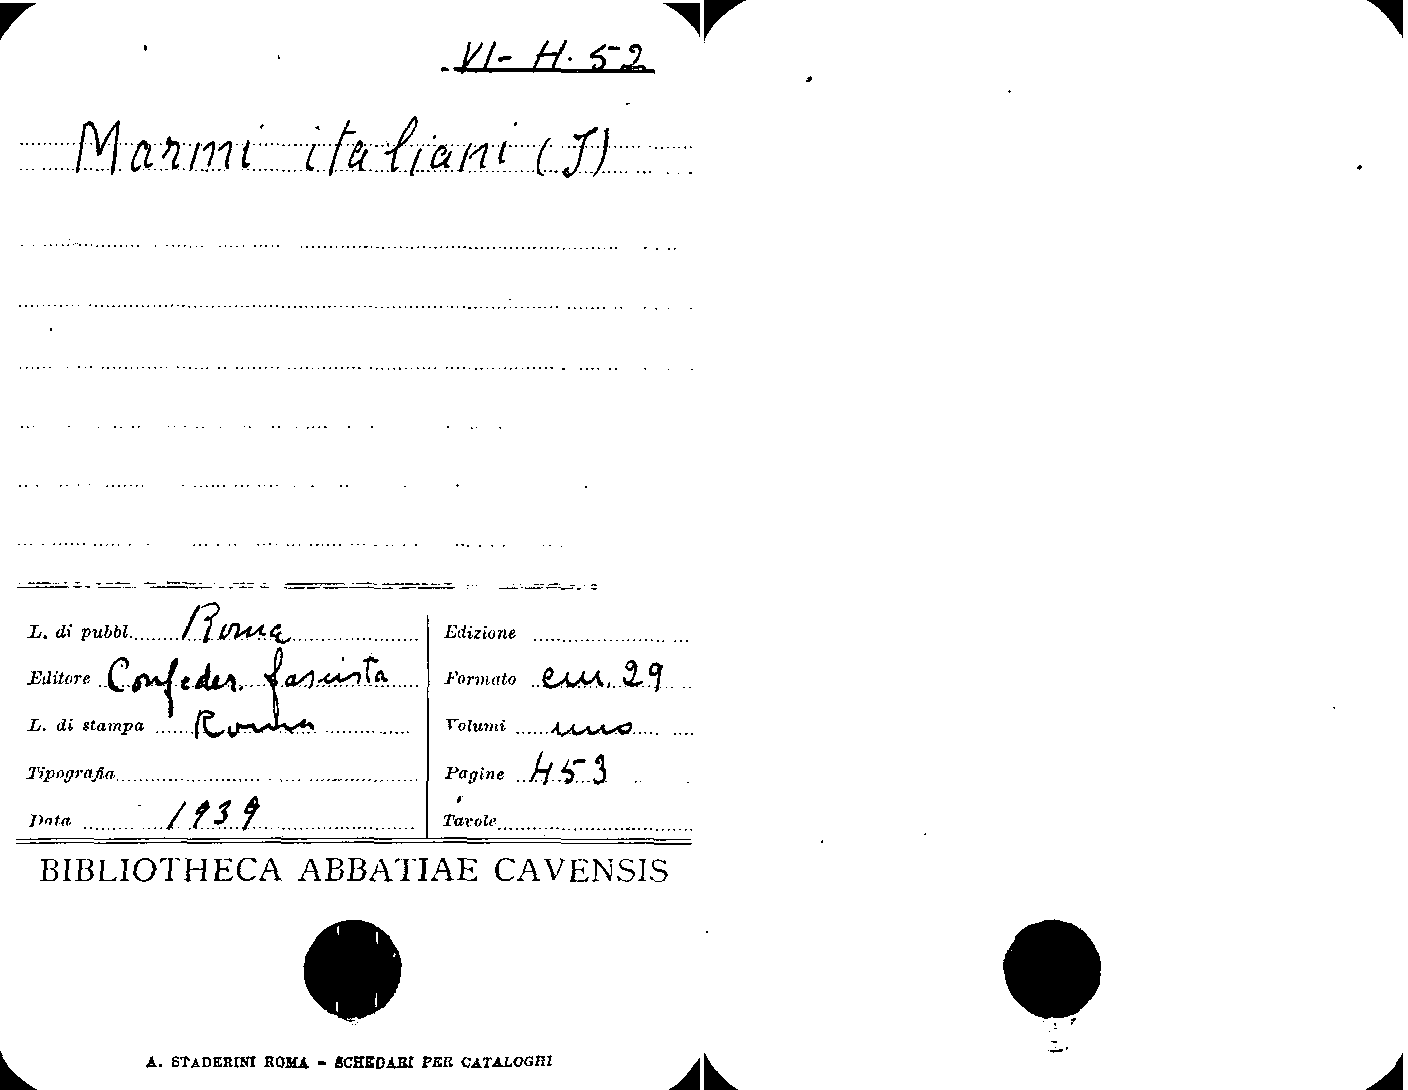 VI- H. 52
Marmi italiani (I)
L. di pubbl. Roma
Editore Confeder. fascista
L. di stampa Roma
Tipografia
Data 1939
Edizione
Formato cm. 29
Volumi uno
Pagine 453
Tavole
BIBLIOTHECA ABBATIAE CAVENSIS
A. STADERINI ROMA - SCHEDARI PER CATALOGHI